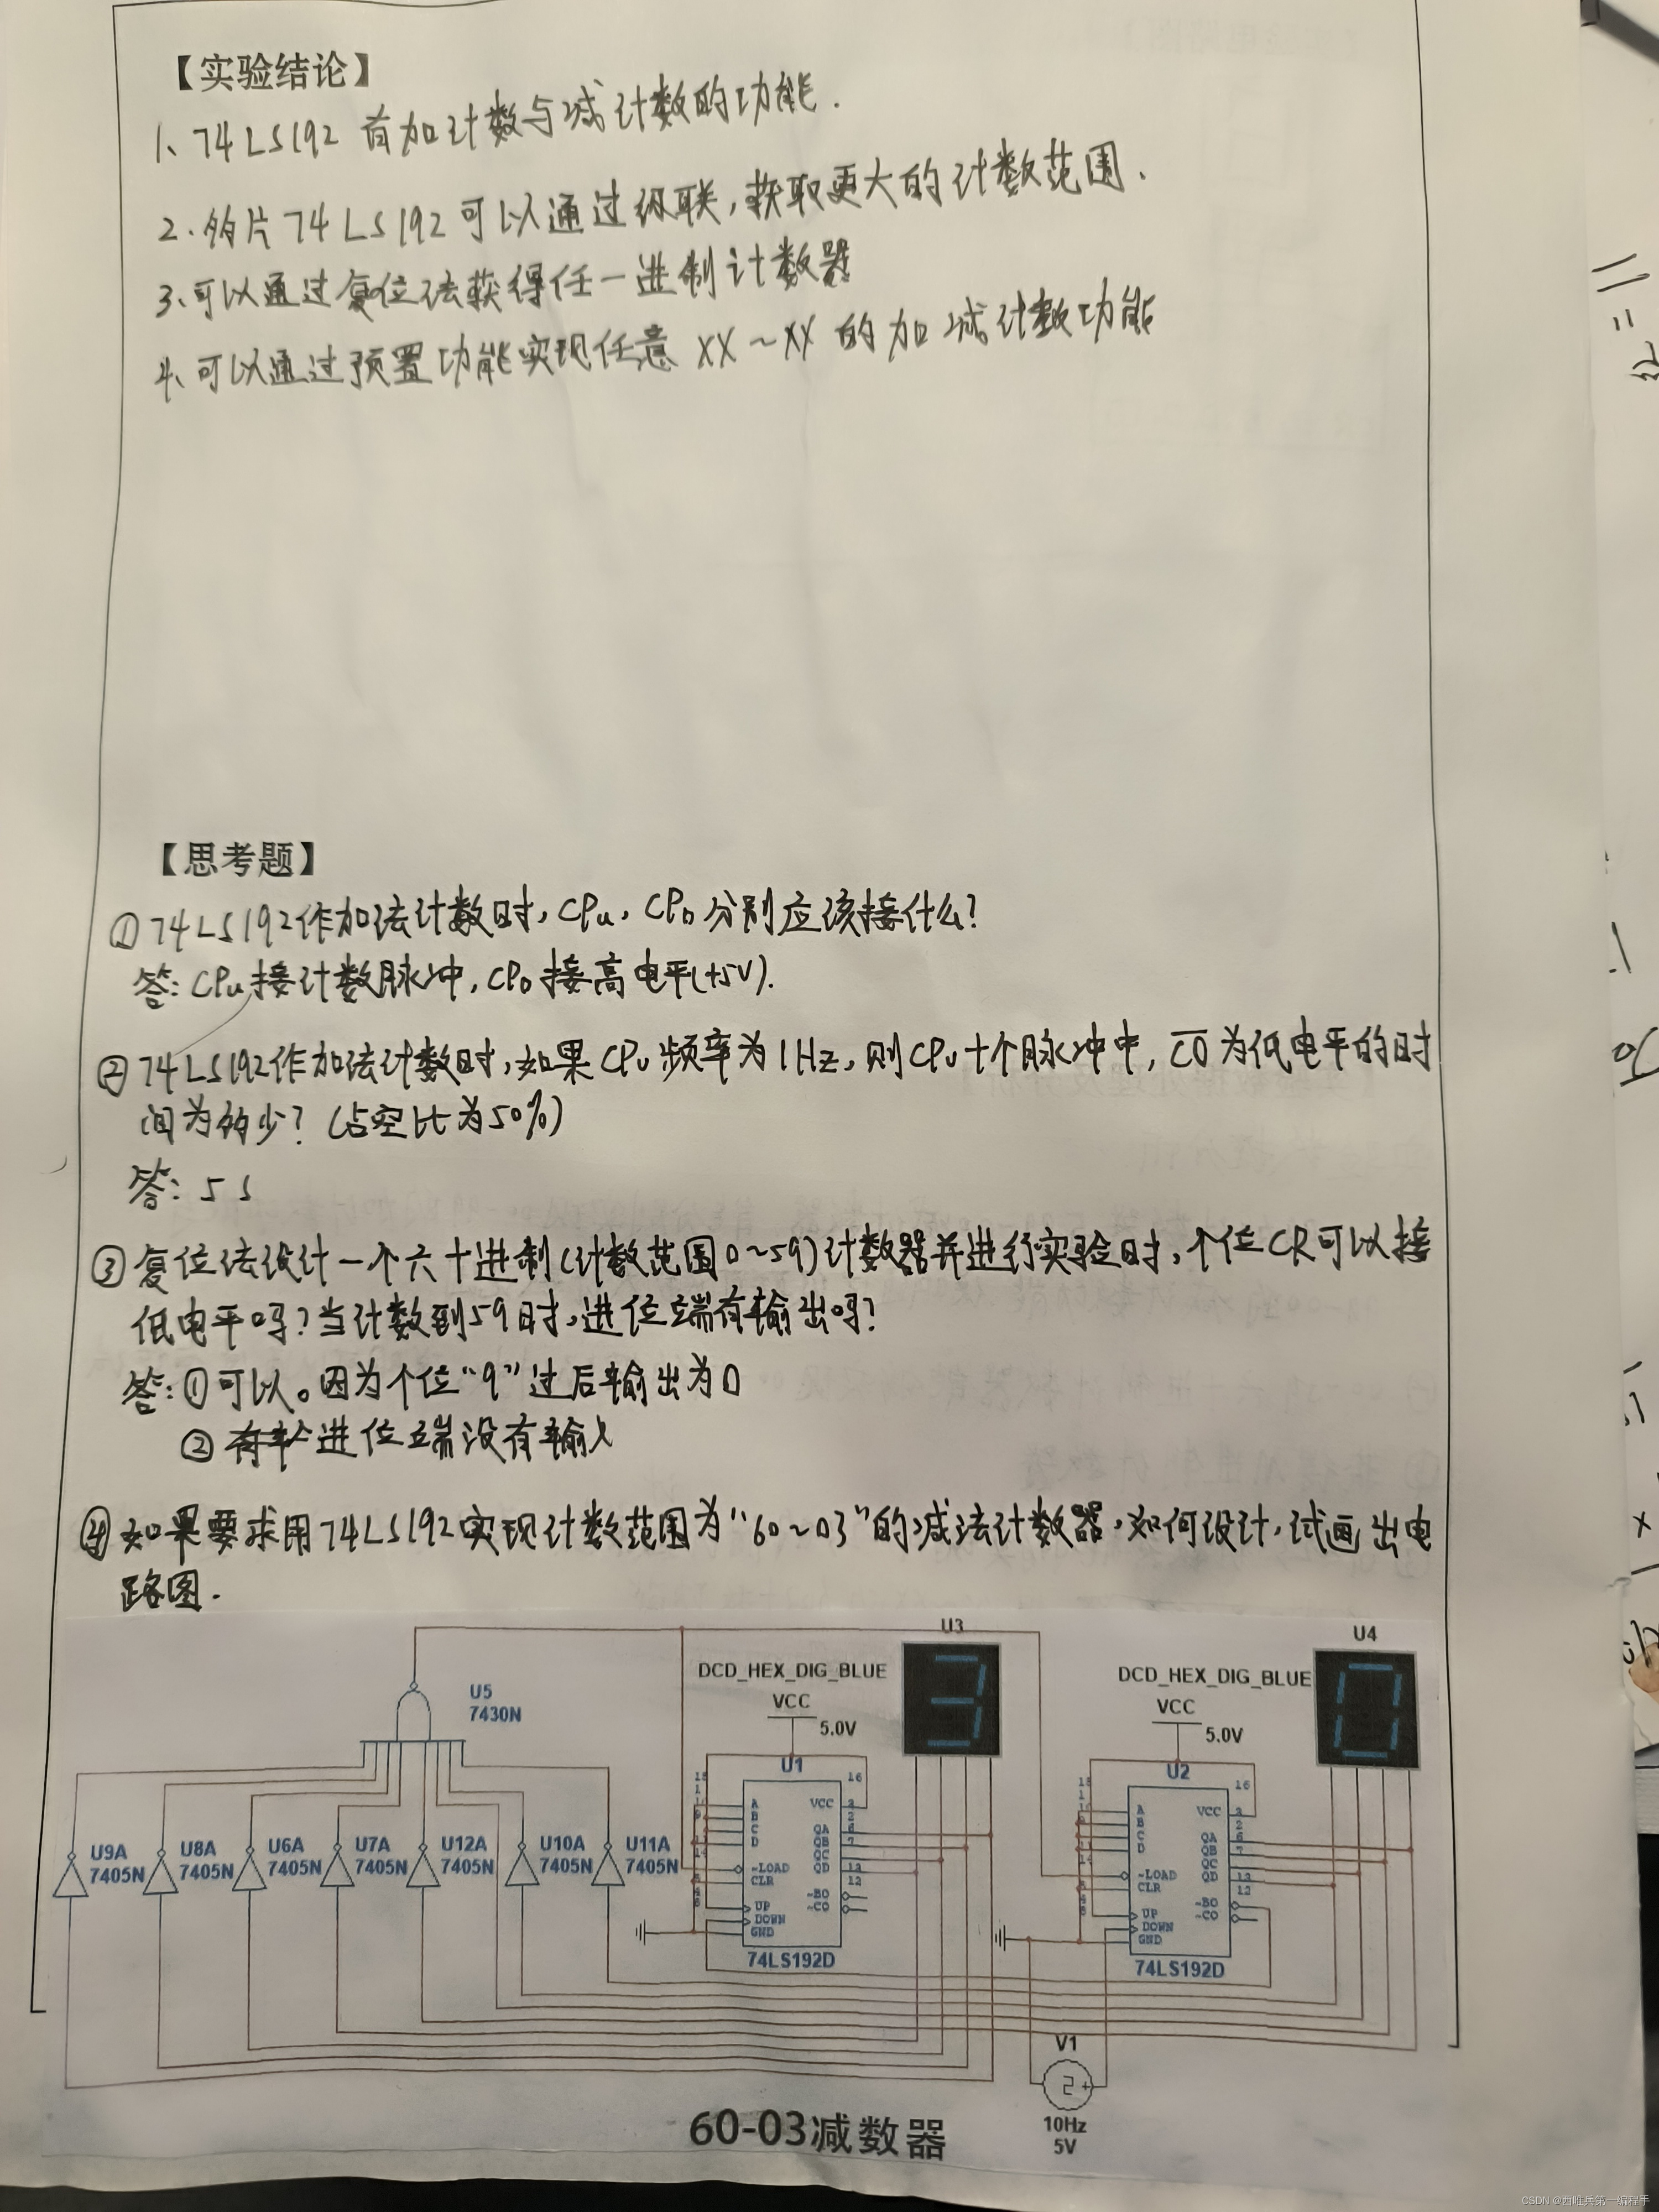 【实验结论】
1、74LS192 有加计数与减计数的功能.
2、多片74LS192可以通过级联,获取更大的计数范围.
3、可以通过复位法获得任一进制计数器
4、可以通过预置功能实现任意 XX~XX 的加减计数功能
【思考题】
①74LS192作加法计数时,CPu、CPD分别应该接什么?
答:CPu接计数脉冲,CPD接高电平(+5V).
②74LS192作加法计数时,如果CPu频率为1Hz,则CPu十个脉冲中,CO为低电平的时
间为多少?(占空比为50%)
答:5s
③复位法设计一个六十进制(计数范围0~59)计数器并进行实验时,个位CR可以接
低电平吗?当计数到59时,进位端有输出吗?
答:①可以。因为个位“9”过后输出为0
②进位端没有输入
④如果要求用74LS192实现计数范围为“60~03”的减法计数器,如何设计,试画出电
路图.
U3
U4
DCD_HEX_DIG_BLUE
DCD_HEX_DIG_BLUE
U5
7430N
VCC
5.0V
VCC
5.0V
U1
U2
U9A
7405N
U8A
7405N
U6A
7405N
U7A
7405N
U12A
7405N
U10A
7405N
U11A
7405N
A
B
C
D
~LOAD
CLR
UP
DOWN
GND
VCC
QA
QB
QC
QD
~BO
~CO
16
13
12
74LS192D
A
B
C
D
~LOAD
CLR
UP
DOWN
GND
VCC
QA
QB
QC
QD
~BO
~CO
16
13
12
74LS192D
V1
10Hz
5V
60-03减数器
CSDN @西唯兵第一编程手